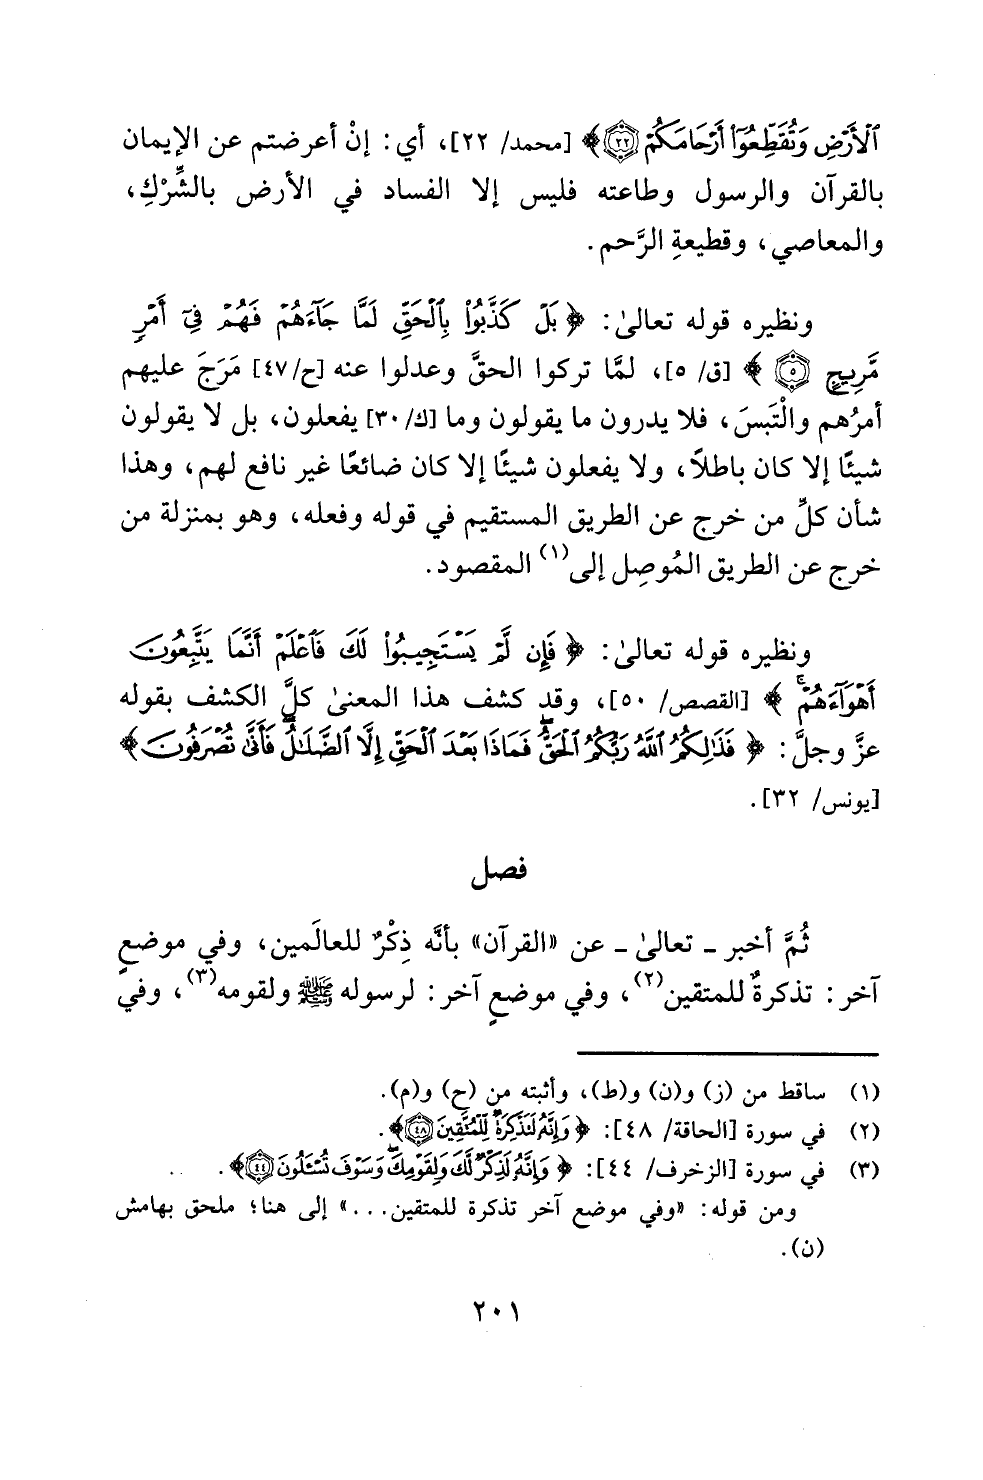 ٱلْأَرْضِ وَتُقَطِّعُوٓا۟ أَرْحَامَكُمْ ﴿٢٢﴾﴾ [محمد/ ٢٢]، أي: إنْ أعرضتم عن الإيمان
بالقرآن والرسول وطاعته فليس إلا الفساد في الأرض بالشِّرْكِ،
والمعاصي، وقطيعةِ الرَّحم.
ونظيره قوله تعالىٰ: ﴿بَلْ كَذَّبُوا۟ بِٱلْحَقِّ لَمَّا جَآءَهُمْ فَهُمْ فِىٓ أَمْرٍ
مَّرِيجٍ ﴿٥﴾﴾ [ق/ ٥]، لمَّا تركوا الحقَّ وعدلوا عنه [ح/٤٧] مَرَجَ عليهم
أمرُهم والْتَبسَ، فلا يدرون ما يقولون وما [ك/٣٠] يفعلون، بل لا يقولون
شيئًا إلا كان باطلاً، ولا يفعلون شيئًا إلا كان ضائعًا غير نافع لهم، وهذا
شأن كلِّ من خرج عن الطريق المستقيم في قوله وفعله، وهو بمنزلة من
خرج عن الطريق المُوصِل إلى(١) المقصود.
ونظيره قوله تعالىٰ: ﴿فَإِن لَّمْ يَسْتَجِيبُوا۟ لَكَ فَٱعْلَمْ أَنَّمَا يَتَّبِعُونَ
أَهْوَآءَهُمْ ۚ﴾ [القصص/ ٥٠]، وقد كشف هذا المعنىٰ كلَّ الكشف بقوله
عزَّ وجلَّ: ﴿فَذَٰلِكُمُ ٱللَّهُ رَبُّكُمُ ٱلْحَقُّ ۖ فَمَاذَا بَعْدَ ٱلْحَقِّ إِلَّا ٱلضَّلَٰلُ ۖ فَأَنَّىٰ تُصْرَفُونَ﴾
[يونس/ ٣٢].
فصل
ثُمَّ أخبر ـ تعالىٰ ـ عن «القرآن» بأنَّه ذِكْرٌ للعالَمين، وفي موضعٍ
آخر: تذكرةٌ للمتقين(٢)، وفي موضعٍ آخر: لرسوله ﷺ ولقومه(٣)، وفي
(١) ساقط من (ز) و(ن) و(ط)، وأثبته من (ح) و(م).
(٢) في سورة [الحاقة/ ٤٨]: ﴿وَإِنَّهُۥ لَتَذْكِرَةٌ لِّلْمُتَّقِينَ ﴿٤٨﴾﴾.
(٣) في سورة [الزخرف/ ٤٤]: ﴿وَإِنَّهُۥ لَذِكْرٌ لَّكَ وَلِقَوْمِكَ ۖ وَسَوْفَ تُسْـَٔلُونَ ﴿٤٤﴾﴾.
ومن قوله: «وفي موضع آخر تذكرة للمتقين...» إلى هنا؛ ملحق بهامش
(ن).
٢٠١